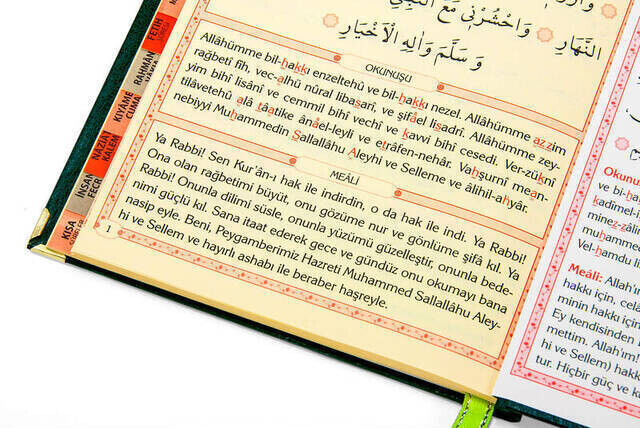 النَّهَارِ وَاحْشُرْنِي مَعَ النَّبِيِّ
وَ سَلَّمَ وَاٰلِهِ الْاَخْيَارِ
OKUNUŞU
Allâhümme bil-hakkı enzeltehû ve bil-hakkı nezel. Allâhümme azzim
rağbetî fîh, vec-alhü nûral libasarî, ve şifâel lisadrî. Allâhümme zey-
yim bihî lisânî ve cemmil bihî vechî ve kavvi bihî cesedî. Ver-züknî
tilâvetehû alâ tâatike ânâel-leyli ve etrâfen-nehâr. Vahşurnî mean-
nebiyyi Muhammedin Sallallâhu Aleyhi ve Selleme ve âlihil-ahyâr.
MEÂLİ
Ya Rabbi! Sen Kur'ân-ı hak ile indirdin, o da hak ile indi. Ya Rabbi!
Ona olan rağbetimi büyüt, onu gözüme nur ve gönlüme şifâ kıl. Ya
Rabbi! Onunla dilimi süsle, onunla yüzümü güzelleştir, onunla bede-
nimi güçlü kıl. Sana itaat ederek gece ve gündüz onu okumayı bana
nasip eyle. Beni, Peygamberimiz Hazreti Muhammed Sallallâhu Aley-
hi ve Sellem ve hayırlı ashabı ile beraber haşreyle.
1
FETİH
RAHMÂN
KIYÂME
CUMA
NAZİAT
KALEM
İNSAN
FECR
KISA
Okunu
ve bi-ha
kadîmel-i
minez-zâli
Vel-hamdu l
Meâli: Allah'ı
hakkı için, cel
minin hakkı için
Ey kendisinden
mettim. Allah'ım!
hi ve Sellem) hakk
tur. Hiçbir güç ve k